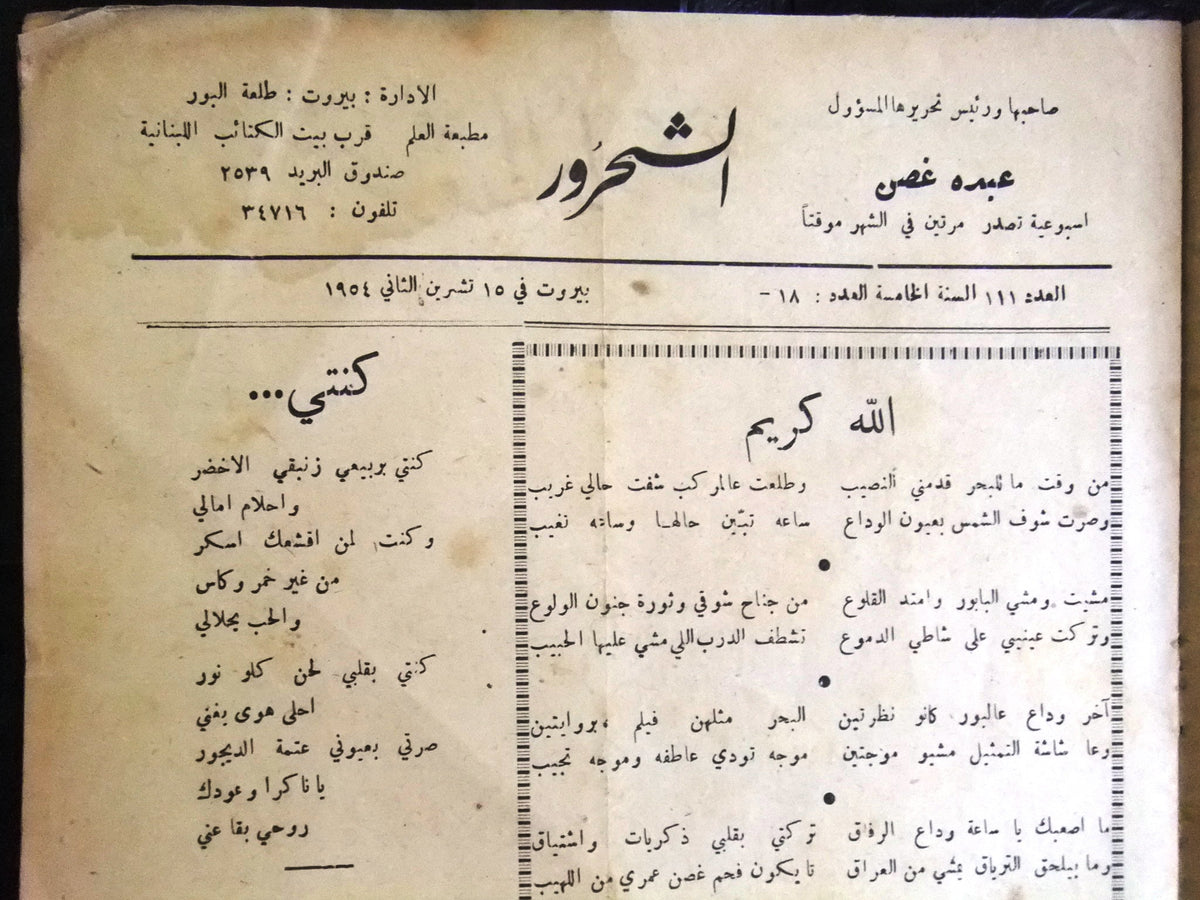 صاحبها ورئيس تحريرها المسؤول
عبده غصن
اسبوعية تصدر مرتين في الشهر موقتاً
الشحرُور
الادارة : بيروت : طلعة البور
مطبعة العلم قرب بيت الكتائب اللبنانية
صندوق البريد ٢٥٣٩
تلفون : ٣٤٧١٦
العدد ١١١ السنة الخامسة العدد : ١٨ –
بيروت في ١٥ تشرين الثاني ١٩٥٤
الله كريم
من وقت ما للبحر قدمني النصيب وطلعت عالمركب شفت حالي غريب
وصرت شوف الشمس بعيون الوداع ساعه تبيّن حالها وساعه تغيب
مشيت ومشي البابور وامتد القلوع من جناح شوقي وثورة جنون الولوع
وتركت عينيي على شاطي الدموع تشطف الدرب اللي مشي عليها الحبيب
آخر وداع عالبور كانو نظرتين البحر مثلهن فيلم بروايتين
وعا شاشة التمثيل مشيو موجتين موجه تودي عاطفه وموجه تجيب
ما اصعبك يا ساعة وداع الرفاق تركتي بقلبي ذكريات واشتياق
وما بيلحق الترياق يمشي من العراق تا يكون فحم غصن عمري من اللهيب
كنتي ...
كنتي بربيعي زنبقي الاخضر
واحلام امالي
وكنت لمن اقشعك اسكر
من غير خمر وكاس
والحب يحلالي
كنتي بقلبي لحن كلو نور
احلى هوى يغني
صرتي بعيوني عتمة الديجور
يا ناكرا وعودك
روحي بقا عني